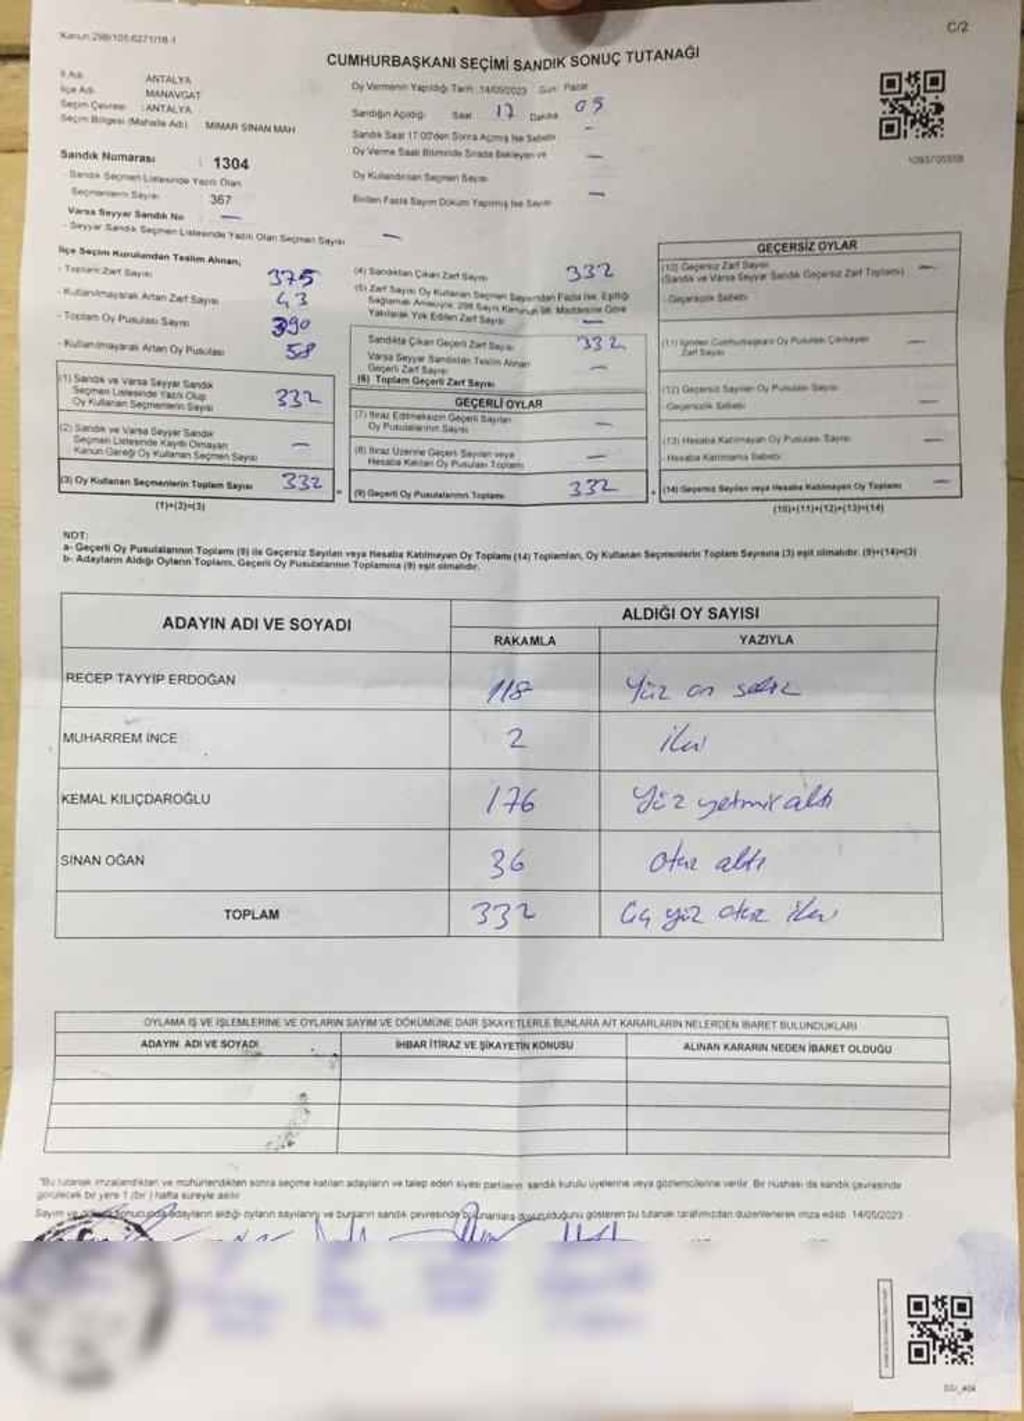 Kanun:298/105-6271/18-1
C/2
CUMHURBAŞKANI SEÇİMİ SANDIK SONUÇ TUTANAĞI
İl Adı : ANTALYA
İlçe Adı : MANAVGAT
Seçim Çevresi : ANTALYA
Seçim Bölgesi (Mahalle Adı) : MİMAR SİNAN MAH
Oy Vermenin Yapıldığı Tarih :14/05/2023 Gün: Pazar
Sandığın Açıldığı Saat 17 Dakika 05
Sandık Saat 17:00'den Sonra Açılmış İse Sebebi —
Oy Verme Saati Bitiminde Sırada Bekleyen ve
Oy Kullandırılan Seçmen Sayısı —
Birden Fazla Sayım Döküm Yapılmış İse Sayısı —
Sandık Numarası : 1304
Sandık Seçmen Listesinde Yazılı Olan
Seçmenlerin Sayısı : 367
Varsa Seyyar Sandık No —
- Seyyar Sandık Seçmen Listesinde Yazılı Olan Seçmen Sayısı —
İlçe Seçim Kurulundan Teslim Alınan;
- Toplam Zarf Sayısı 375
- Kullanılmayarak Artan Zarf Sayısı 43
- Toplam Oy Pusulası Sayısı 390
- Kullanılmayarak Artan Oy Pusulası 58
(1) Sandık ve Varsa Seyyar Sandık
Seçmen Listesinde Yazılı Olup
Oy Kullanan Seçmenlerin Sayısı 332
(2) Sandık ve Varsa Seyyar Sandık
Seçmen Listesinde Kayıtlı Olmayan
Kanun Gereği Oy Kullanan Seçmen Sayısı —
(3) Oy Kullanan Seçmenlerin Toplam Sayısı 332
(1)+(2)=(3)
(4) Sandıktan Çıkan Zarf Sayısı 332
(5) Zarf Sayısı Oy Kullanan Seçmen Sayısından Fazla İse, Eşitliği
Sağlamak Amacıyla, 298 Sayılı Kanunun 98. Maddesine Göre
Yakılarak Yok Edilen Zarf Sayısı —
Sandıkta Çıkan Geçerli Zarf Sayısı 332
Varsa Seyyar Sandıktan Teslim Alınan
Geçerli Zarf Sayısı —
(6) Toplam Geçerli Zarf Sayısı
GEÇERLİ OYLAR
(7) İtiraz Edilmeksizin Geçerli Sayılan
Oy Pusulalarının Sayısı —
(8) İtiraz Üzerine Geçerli Sayılan veya
Hesaba Katılan Oy Pusulası Toplamı —
(9) Geçerli Oy Pusulalarının Toplamı 332
GEÇERSİZ OYLAR
(10) Geçersiz Zarf Sayısı
(Sandık ve Varsa Seyyar Sandık Geçersiz Zarf Toplamı) —
- Geçersizlik Sebebi
(11) İçinden Cumhurbaşkanı Oy Pusulası Çıkmayan
Zarf Sayısı —
(12) Geçersiz Sayılan Oy Pusulası Sayısı —
- Geçersizlik Sebebi
(13) Hesaba Katılmayan Oy Pusulası Sayısı —
- Hesaba Katılmama Sebebi
(14) Geçersiz Sayılan veya Hesaba Katılmayan Oy Toplamı —
(10)+(11)+(12)+(13)=(14)
NOT:
a- Geçerli Oy Pusulalarının Toplamı (9) ile Geçersiz Sayılan veya Hesaba Katılmayan Oy Toplamı (14) Toplamları, Oy Kullanan Seçmenlerin Toplam Sayısına (3) eşit olmalıdır. (9)+(14)=(3)
b- Adayların Aldığı Oyların Toplamı, Geçerli Oy Pusulalarının Toplamına (9) eşit olmalıdır.
ADAYIN ADI VE SOYADI
ALDIĞI OY SAYISI
RAKAMLA YAZIYLA
RECEP TAYYİP ERDOĞAN 118 Yüz on sekiz
MUHARREM İNCE 2 iki
KEMAL KILIÇDAROĞLU 176 Yüz yetmiş altı
SİNAN OĞAN 36 otuz altı
TOPLAM 332 Üç yüz otuz iki
OYLAMA İŞ VE İŞLEMLERİNE VE OYLARIN SAYIM VE DÖKÜMÜNE DAİR ŞİKAYETLERLE BUNLARA AİT KARARLARIN NELERDEN İBARET BULUNDUKLARI
ADAYIN ADI VE SOYADI İHBAR İTİRAZ VE ŞİKAYETİN KONUSU ALINAN KARARIN NEDEN İBARET OLDUĞU
"Bu tutanak imzalandıktan ve mühürlendikten sonra seçime katılan adayların ve talep eden siyasi partilerin sandık kurulu üyelerine veya gözlemcilerine verilir. Bir nüshası da sandık çevresinde
görülecek bir yere 1 (bir) hafta süreyle asılır
Sayım ve döküm sonucunda adayların aldığı oyların sayılarını ve bunların sandık çevresinde bulunanlara duyurulduğunu gösteren bu tutanak tarafımızdan düzenlenerek imza edildi. 14/05/2023